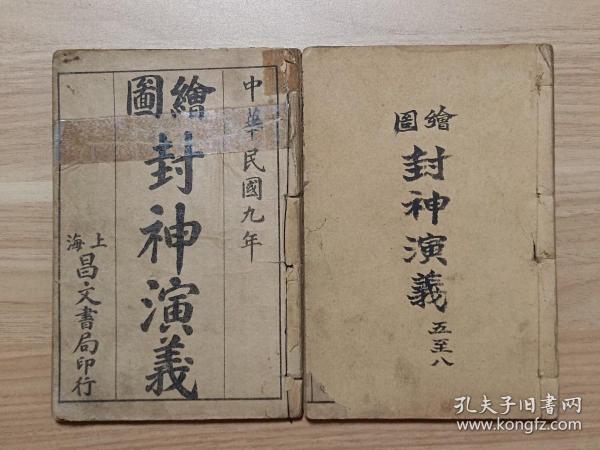 中華民國九年
繪圖
封神演義
上海
昌文書局印行
繪圖
封神演義
五至八
孔夫子旧书网
www.kongfz.com